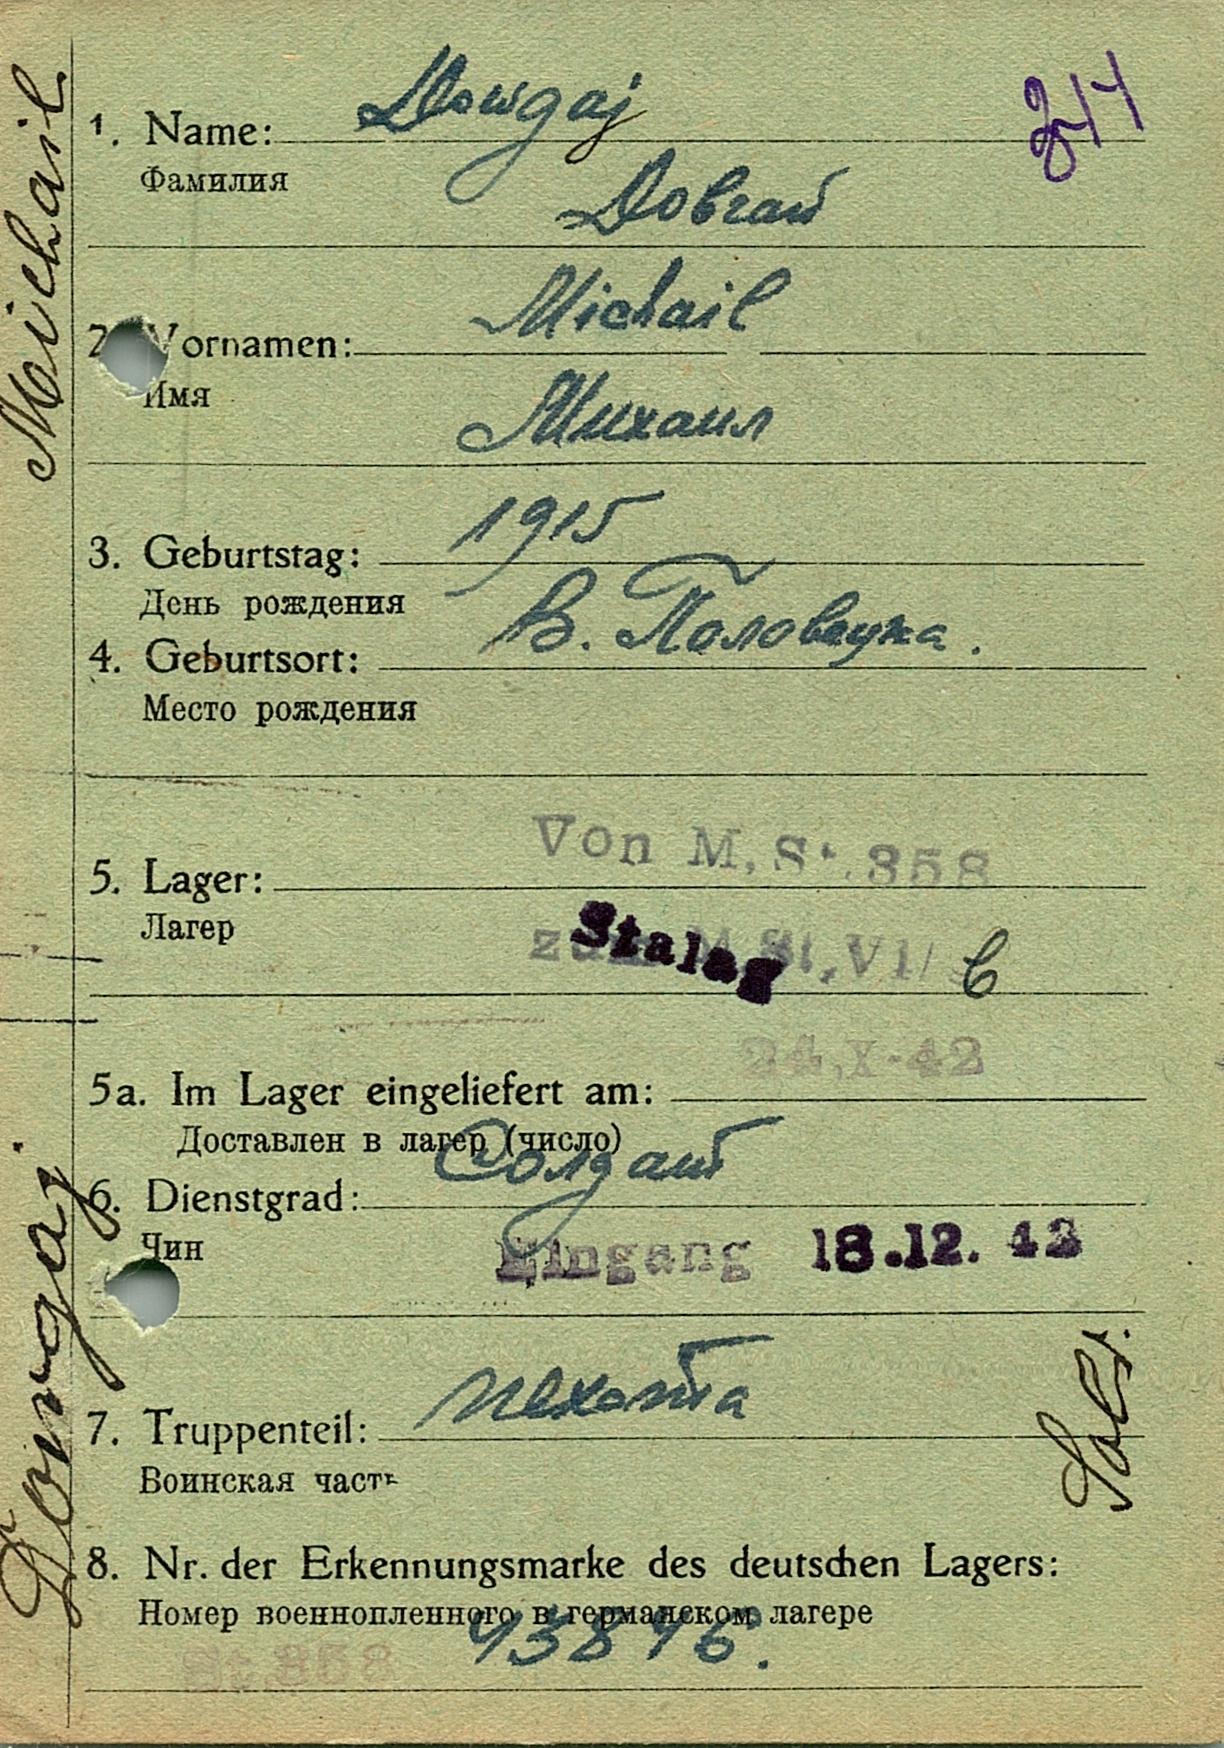 1. Name: Dowgaj
Фамилия
Довгай
2. Vornamen: Michail
Имя
Михаил
3. Geburtstag: 1915
День рождения
4. Geburtsort:
Место рождения
5. Lager: Von M. St. 358
Лагер
Stalag
zum M. St. VI/ C
24.X.42
5a. Im Lager eingeliefert am:
Доставлен в лагер (число)
6. Dienstgrad: Солдат
Чин
Eingang 18.12.42
7. Truppenteil: пехота
Воинская часть
Sold.
8. Nr. der Erkennungsmarke des deutschen Lagers:
Номер военнопленного в германском лагере
St. 358
Michail
Dowgaj